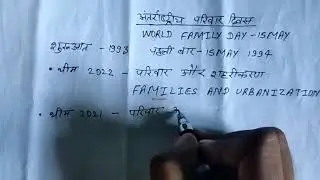 अंतर्राष्ट्रीय परिवार दिवस
WORLD FAMILY DAY - 15 MAY
शुरुआत - 1993
पहली बार - 15 MAY 1994
• थीम 2022 - परिवार और शहरीकरण
FAMILIES AND URBANIZATION
• थीम 2021 - परिवार